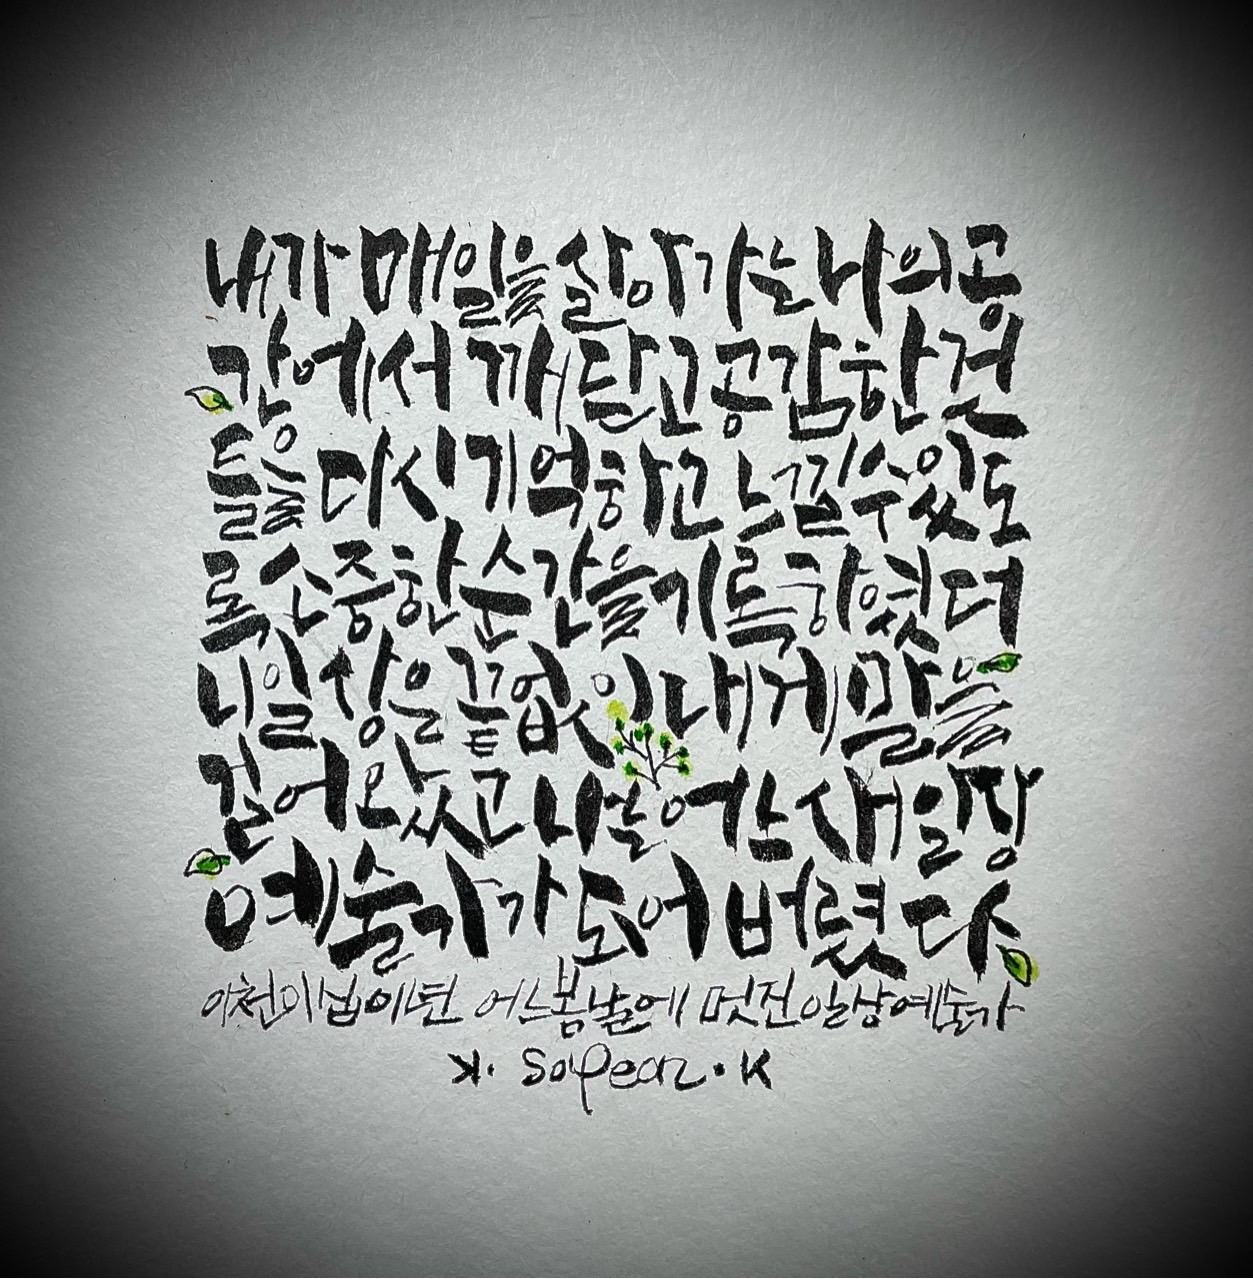 내가 매일을 살아가는 나의 공
간에서 깨닫고 공감한 것
들을 다시 기억하고 느낄 수 있도
록 소중한 순간을 기록하였더
니 일상은 끝없이 내게 말을
걸어 왔고 나는 어간새 일상
예술가가 되어 버렸다
이천이십이년 어느 봄날에 멋진 일상예술가
K. Sopean. K